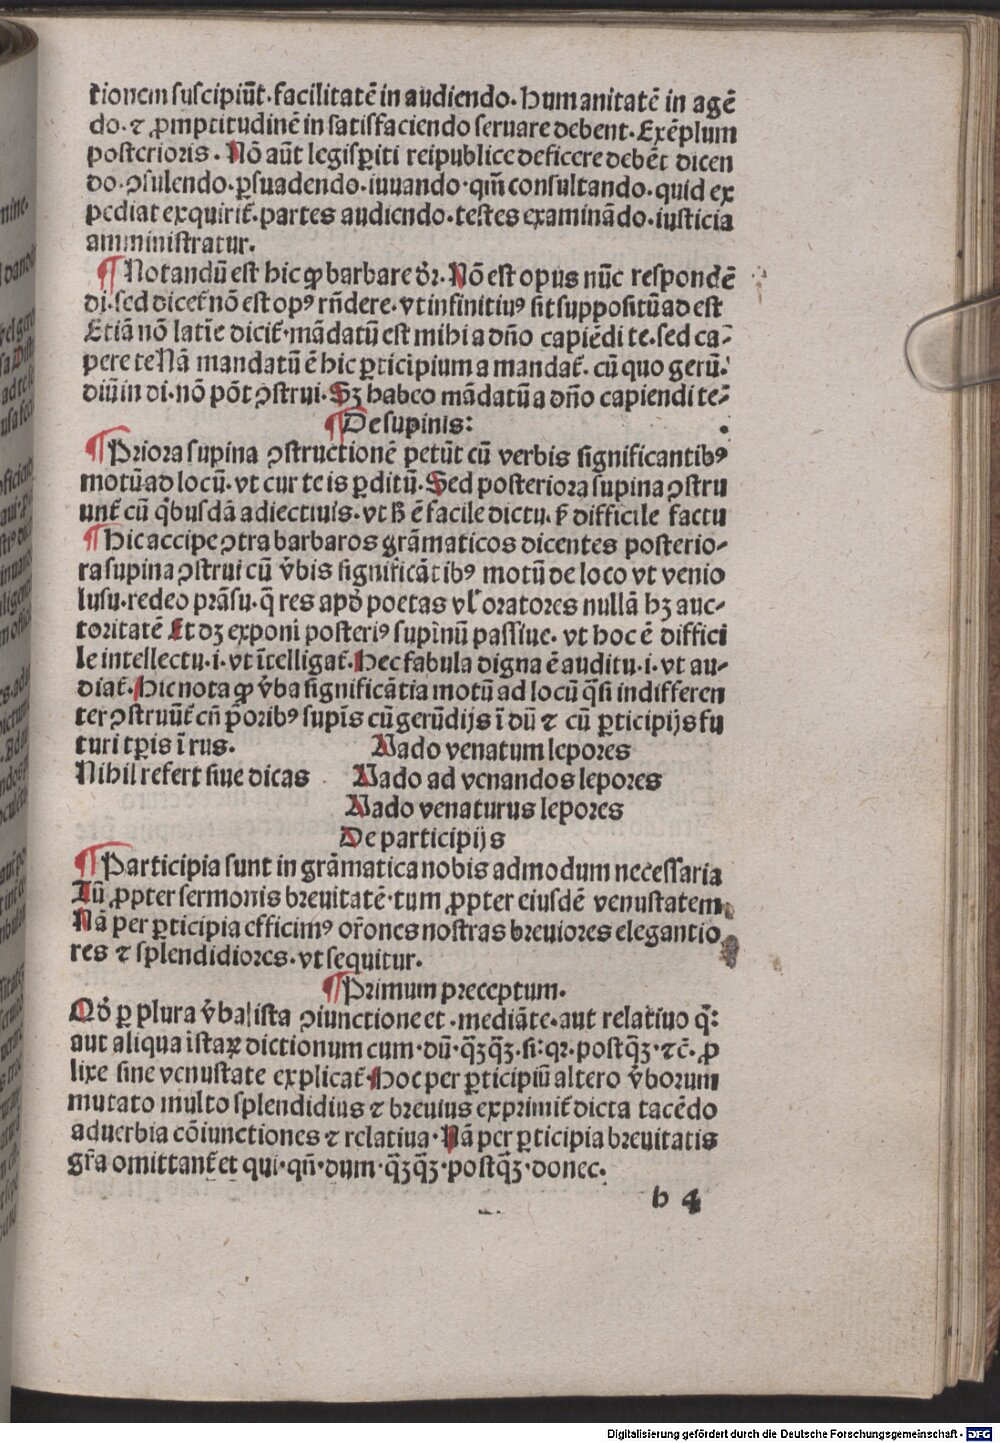 tionem suscipiūt·facilitatē in audiendo·humanitatē in agē
do·⁊ ꝓmptitudinē in satisfaciendo seruare debent·Exēplum
posterioris·Nō aūt legisꝑiti reipublice deficere debēt dicen
do·ꝯsulendo·ꝑsuadendo·iuuando·qm̄ consultando·quid ex
pediat exquirit᷑·partes audiendo·testes examinādo·iusticia
amministratur.
¶ Notandū est hic ꝙ barbare dr̄·Nō est opus nūc respondē
di·sed dicet᷑ nō est opꝰ rn̄dere·vt infinitiuꝰ sit suppositū ad est
Etiā nō latīe dicit᷑·mādatū est mihi a dn̄o capiēdi te·sed ca⸗
pere te Nā mandatū ē hic ꝑticipium a mandat᷑·cū quo gerū⸗
diū in di·nō pōt ꝯstrui·Sꝫ habeo mādatū a dn̄o capiendi te⸗
¶ De supinis:
¶ Priora supina ꝯstructionē petūt cū verbis significantibꝰ
motū ad locū·vt cur te is ꝑditū·Sed posteriora supina ꝯstru
unt᷑ cū qͥbusdā adiectiuis·vt ꝑ ē facile dictu·ꝑ difficile factu
¶ Hic accipe ꝯtra barbaros grāmaticos dicentes posterio⸗
ra supina ꝯstrui cū v̄bis significātibꝰ motū de loco vt venio
lusu·redeo prāsu·q̄ res apd̓ poetas vl̓ oratores nullā hꝫ auc⸗
toritatē Et dꝫ exponi posteriꝰ supinū passiue·vt hoc ē diffici
le intellectu·i·vt ītelligat᷑·Hec fabula digna ē auditu·i·vt au⸗
diat᷑·Hic nota ꝙ v̄ba significātia motū ad locū q̄si indifferen
ter ꝯstruūt᷑ cū p̄oribꝰ supīs cū gerūdijs ī dū ⁊ cū ꝑticipijs fu
turi tꝑis ī rus.
Vado venatum lepores
Nihil refert siue dicas
Vado ad venandos lepores
Vado venaturus lepores
De participijs
¶ Participia sunt in grāmatica nobis admodum necessaria
Tū ꝓpter sermonis breuitatē·tum ꝓpter eiusdē venustatem
Nā per ꝑticipia efficimꝰ or̄ones nostras breuiores elegantio
res ⁊ splendidiores·vt sequitur.
¶ Primum preceptum.
Qd̓ ꝑ plura v̄ba ista ꝯiunctione et·mediāte·aut relatiuo q̄:
aut aliqua istaꝝ dictionum cum·dū·q̄ꝫq̄ꝫ·si:qꝛ·postq̄ꝫ·⁊c̄·ꝓ
lixe sine venustate explicat᷑·Hoc per ꝑticipiū altero v̄borum
mutato multo splendidius ⁊ breuius exprimit᷑ dicta tacēdo
aduerbia cōiunctiones ⁊ relatiua·Nā per ꝑticipia breuitatis
gr̄a omittant᷑ et qui·qn̄·dum·q̄ꝫq̄ꝫ·postq̄ꝫ·donec.
b 4
Digitalisierung gefördert durch die Deutsche Forschungsgemeinschaft - DFG